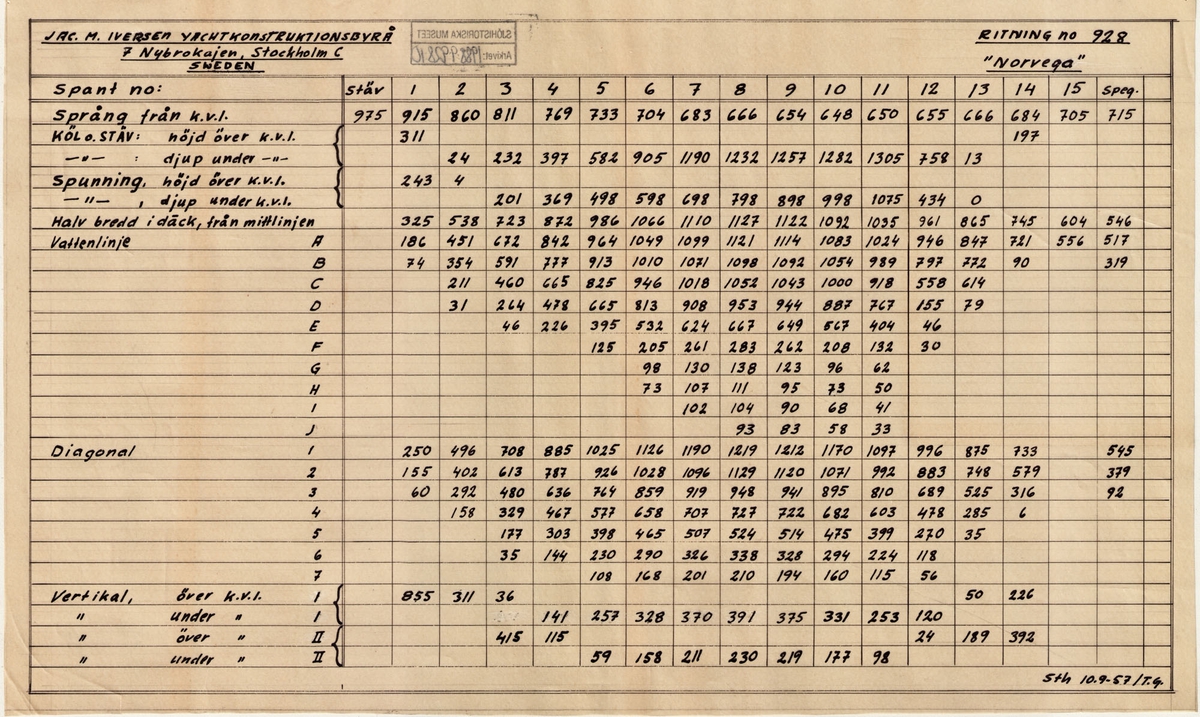 JAC. M. IVERSEN YACHTKONSTRUKTIONSBYRÅ
7 Nybrokajen, Stockholm C
SWEDEN
SJÖHISTORISKA MUSEET
Arkivet:
RITNING no 928
"Norvega"
Spant no: Stäv 1 2 3 4 5 6 7 8 9 10 11 12 13 14 15 Speg.
Språng från k.v.l. 975 915 860 811 769 733 704 683 666 654 648 650 655 666 684 705 715
KÖL o. STÄV: höjd över k.v.l. 311 197
—"— : djup under —"— 24 232 397 582 905 1190 1232 1257 1282 1305 758 13
Spunning, höjd över k.v.l. 243 4
—"— , djup under k.v.l. 201 369 498 598 698 798 898 998 1075 434 0
Halv bredd i däck, från mittlinjen 325 538 723 872 986 1066 1110 1127 1122 1092 1035 961 865 745 604 546
Vattenlinje A 186 451 672 842 964 1049 1099 1121 1114 1083 1024 946 847 721 556 517
B 74 354 591 777 913 1010 1071 1098 1092 1054 989 797 772 90 319
C 211 460 665 825 946 1018 1052 1043 1000 918 558 614
D 31 264 478 665 813 908 953 944 887 767 155 79
E 46 226 395 532 624 667 649 567 404 46
F 125 205 261 283 262 208 132 30
G 98 130 138 123 96 62
H 73 107 111 95 73 50
I 102 104 90 68 41
J 93 83 58 33
Diagonal 1 250 496 708 885 1025 1126 1190 1219 1212 1170 1097 996 875 733 545
2 155 402 613 787 926 1028 1096 1129 1120 1071 992 883 748 579 379
3 60 292 480 636 764 859 919 948 941 895 810 689 525 316 92
4 158 329 467 577 658 707 727 722 682 603 478 285 6
5 177 303 398 465 507 524 514 475 399 270 35
6 35 144 230 290 326 338 328 294 224 118
7 108 168 201 210 194 160 115 56
Vertikal, över k.v.l. I 855 311 36 50 226
" under " I 141 257 328 370 391 375 331 253 120
" över " II 415 115 24 189 392
" under " II 59 158 211 230 219 177 98
Sth 10.9-57/T.G.